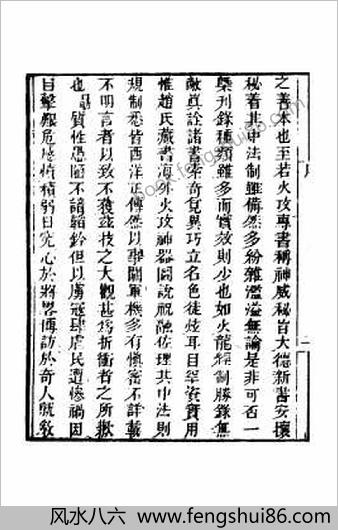 之善本也至若火攻專書稱神威秘旨大德新書安攘
秘着其中法制雖備然多紛雜濫溢無論是非可否一
槩刊錄種類雖多而實效則少也如火龍經制勝錄無
敵眞詮諸書索奇覓異巧立名色徒炫耳目罕資實用
惟趙氏藏書海外火攻神器圖說祝融佐理其中法則
規制悉皆西洋正傳然以事關軍機多有慎密不詳載
不明言者以致不獲茲技之大觀甚爲折衝者之所歉
也勗質性愚陋不諳韜鈐但以虜寇肆虐民遭慘禍因
目擊艱危感憤積弱日究心於將畧博訪於奇人就敎
序
二
www.fengshui86.com
风水八六-www.fengshui86.com